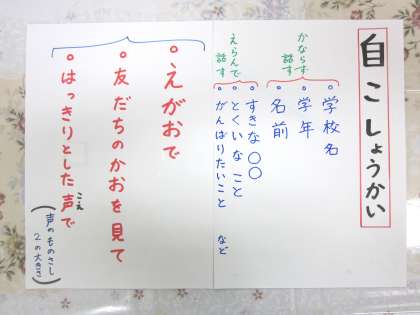 自こしょうかい
かならず
話す
・学校名
・学年
・名前
えらんで
話す
・すきな○○
・とくいなこと
・がんばりたいこと など
・えがおで
・友だちのかおを見て
・はっきりとした声で
こえ
(声のものさし
2の大きさ)